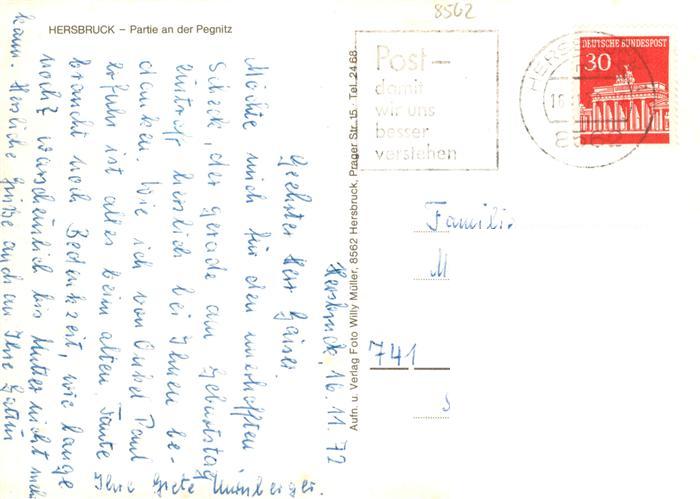 HERSBRUCK – Partie an der Pegnitz
8562
Post –
damit
wir uns
besser
verstehen
DEUTSCHE BUNDESPOST
30
8562
Aufn. u. Verlag Foto Willy Müller, 8562 Hersbruck, Prager Str. 15 · Tel. 2468
Hersbruck, 16.11.72
Geehrter Herr Gaiser.
Möchte mich für den unverhofften
Scheck, der gerade am Geburtstag
eintraf herzlich bei Ihnen be-
danken. Wie ich von Onkel Paul
erfuhr ist alles beim alten, Tante
braucht noch Bedenkzeit, wie lange
noch? warscheinlich bis Mutter nicht mehr
kann. Herzliche Grüße auch an Ihre Gattin
Ihre Grete
Famili
M
741
S